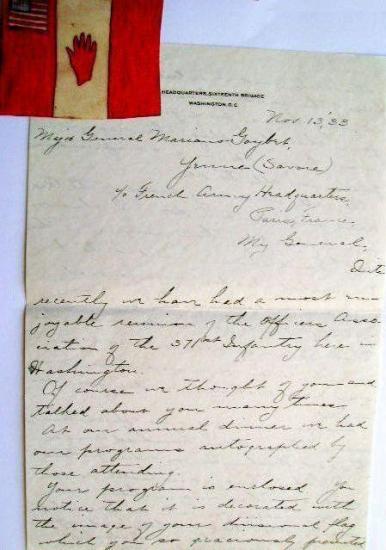 HEADQUARTERS, SIXTEENTH BRIGADE
WASHINGTON, D.C.
Nov. 13, '33
Major General Mariano Goybet,
Yenne (Savoie)
c/o French Army Headquarters,
Paris, France.
My General,
Quite
recently we have had a most en-
joyable reunion of the Officers Asso-
ciation of the 371st Infantry here in
Washington.
Of course we thought of you and
talked about you many times.
At our annual dinner we had
our programs autographed by
those attending.
Your program is enclosed. You
notice that it is decorated with
the image of your divisional flag
which you so graciously presented